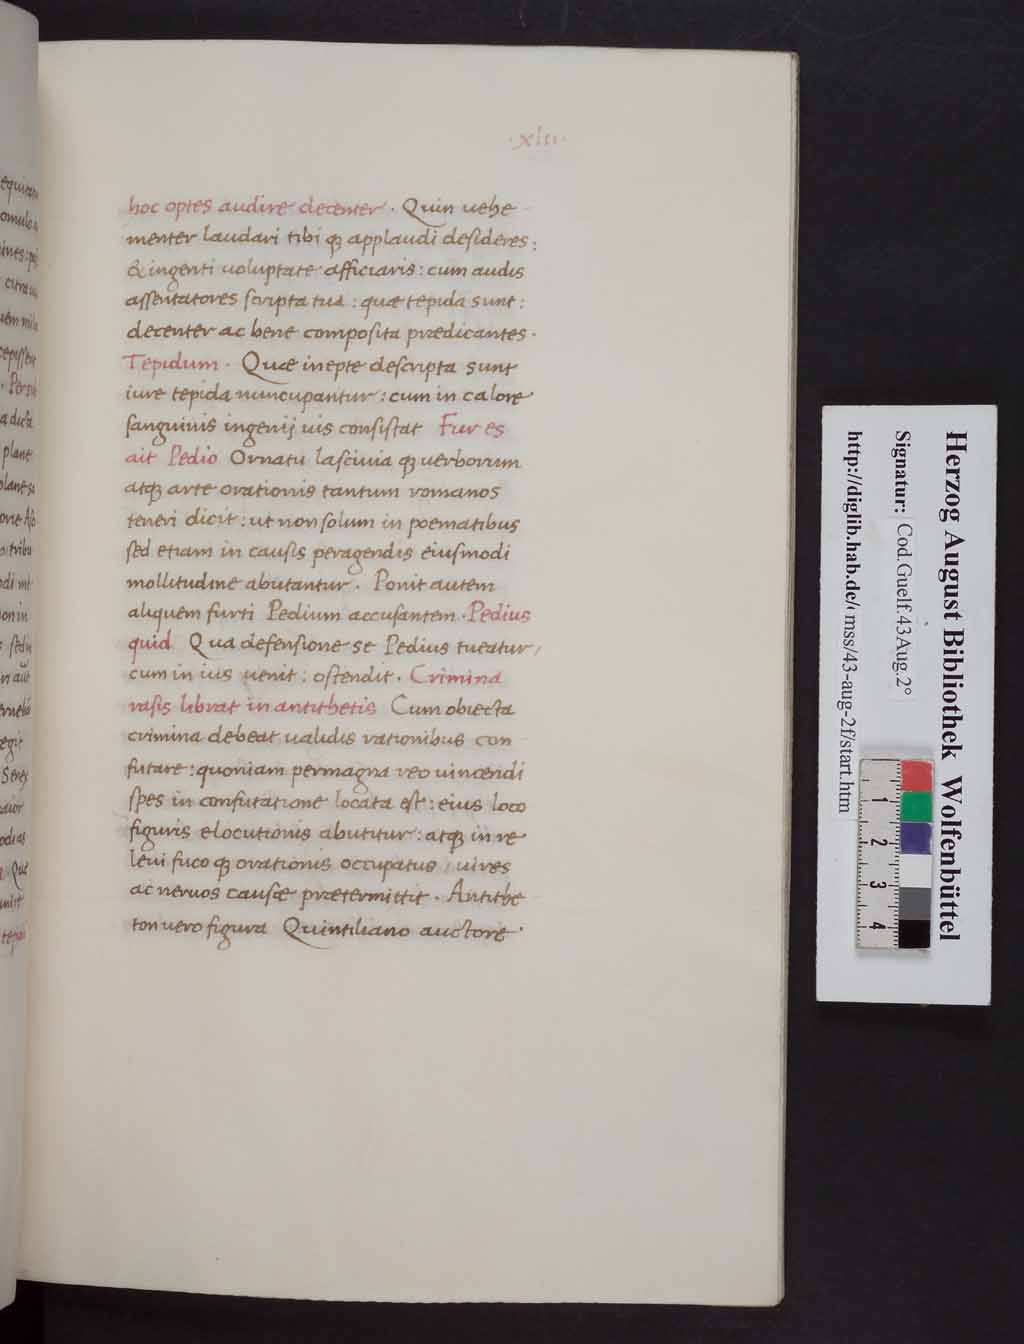 ·xlii·
hoc optes audire decenter · Quin uehe
menter laudari tibi qȝ applaudi desideres :
& ingenti uoluptate afficiaris : cum audis
assentatores scripta tua : quæ tepida sunt :
decenter ac bene composita prædicantes ·
Tepidum · Quæ inepte descripta sunt
iure tepida nuncupantur : cum in calore
sanguinis ingenij uis consistat Fur es
ait Pedio Ornatu lasciuia qȝ uerborum
atqȝ arte orationis tantum romanos
teneri dicit : ut non solum in poematibus
sed etiam in causis peragendis eiusmodi
mollitudine abutantur · Ponit autem
aliquem furti Pedium accusantem · Pedius
quid Qua defensione se Pedius tueatur /
cum in ius uenit : ostendit · Crimina
rasis librat in antithetis Cum obiecta
crimina debeat ualidis rationibus con
futare : quoniam permagna reo uincendi
spes in confutatione locata est : eius loco
figuris elocutionis abutitur : atqȝ in re
leui fuco qȝ orationis occupatus / uires
ac neruos causæ prætermittit · Antithe
ton uero figura Quintiliano auctore ·
Herzog August Bibliothek Wolfenbüttel
Signatur: Cod.Guelf.43 Aug.2°
http://diglib.hab.de/ mss/43-aug-2f/start.htm
1
2
3
4